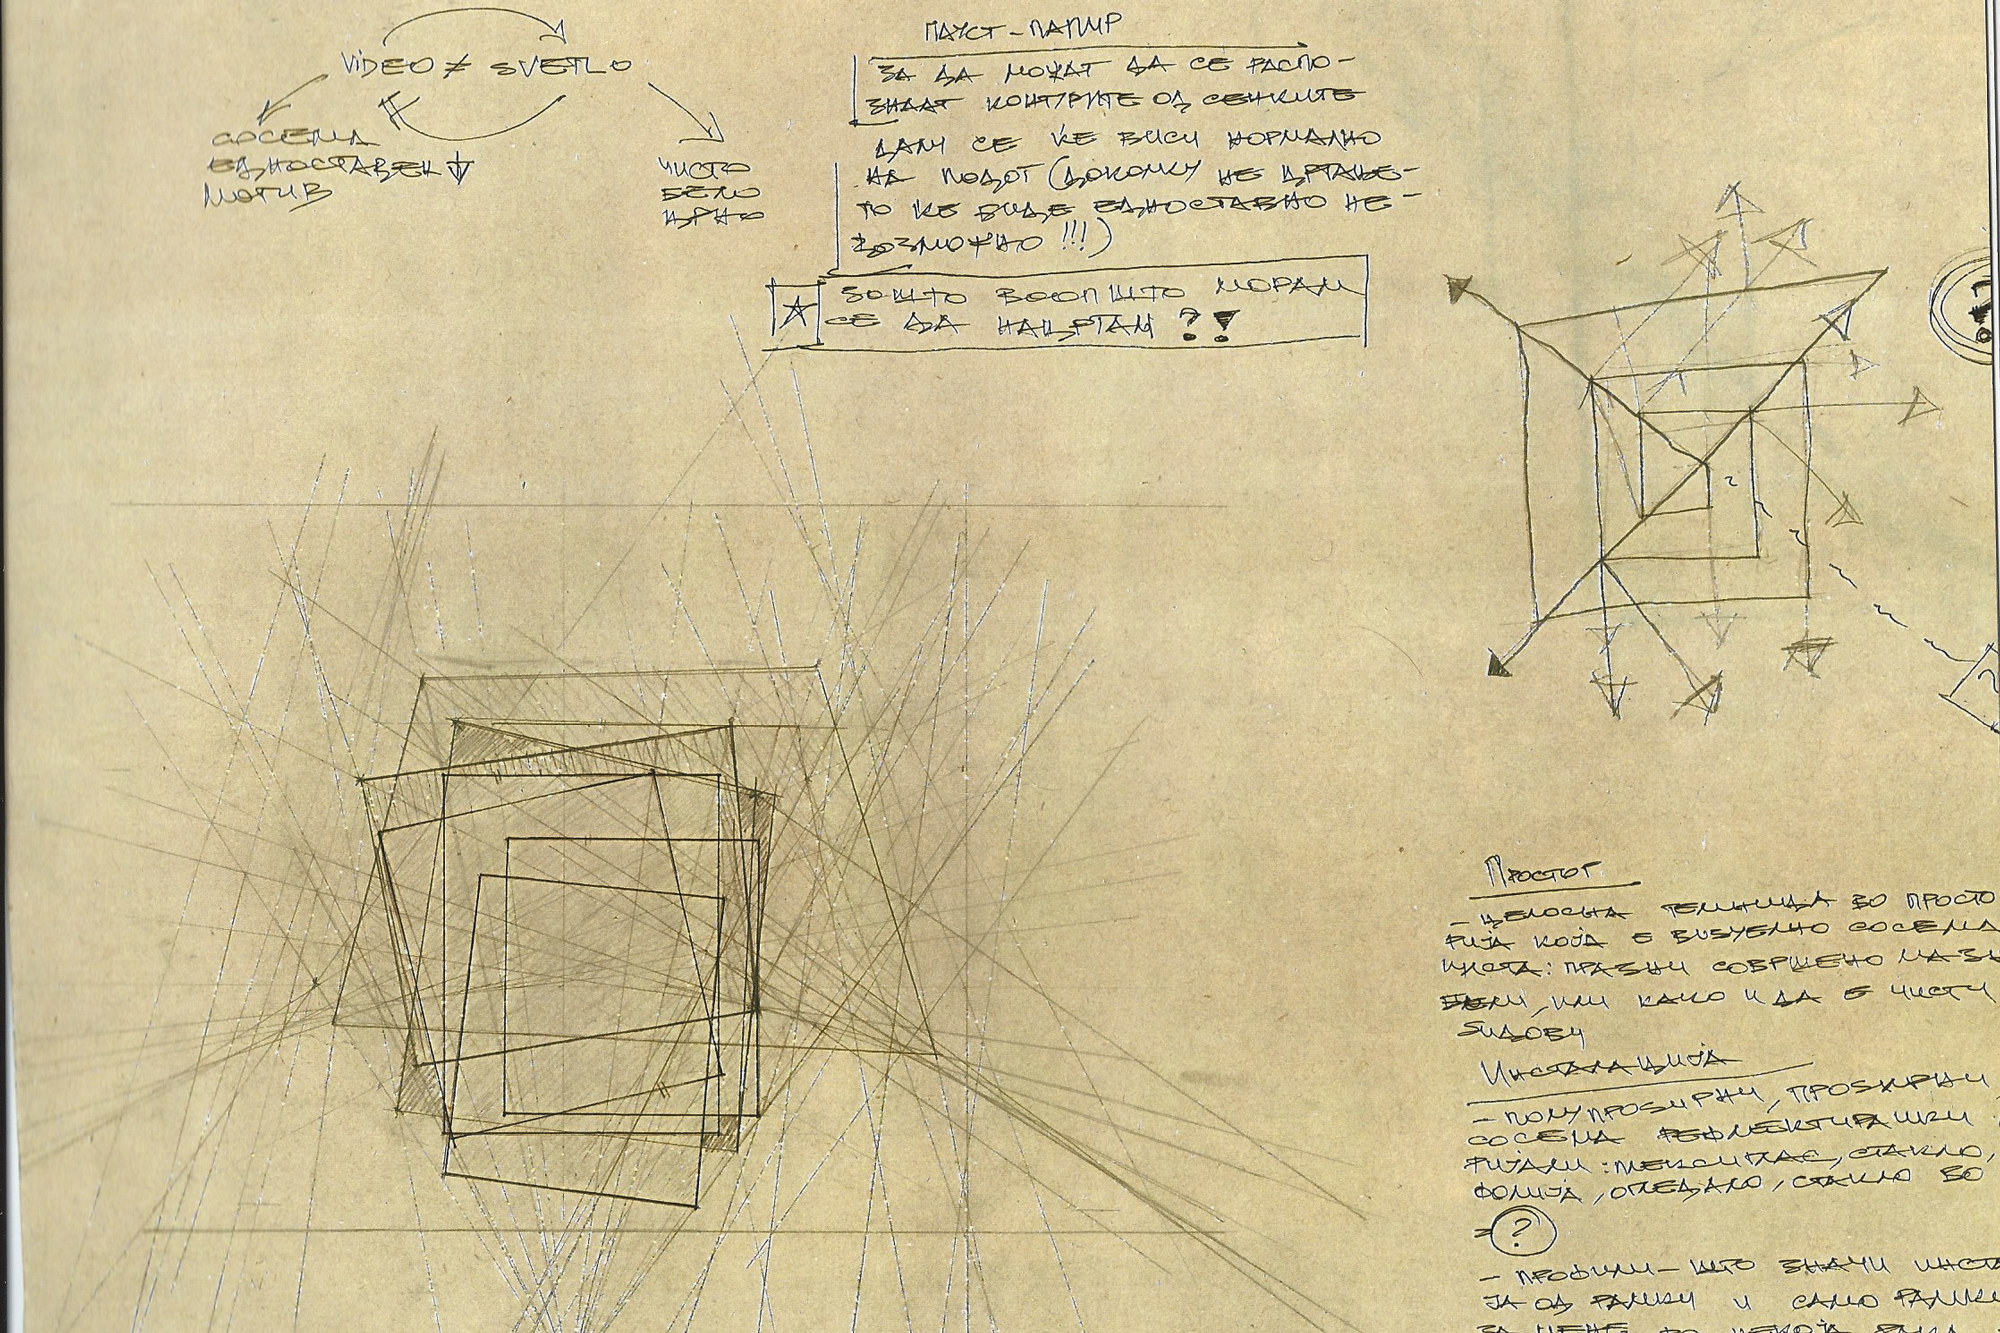 VIDEO ≠ SVETLO
СОСЕМА
ЕДНОСТАВЕН
МОТИВ
ЧИСТО
БЕЛО
ЦРНО
ПАУСТ-ПАПИР
ЗА ДА МОЖАТ ДА СЕ РАСПО-
ЗНААТ КОНТУРИТЕ ОД СЕНКИТЕ
ДАЛИ СЕ ЌЕ ВИСИ НОРМАЛНО
НА ПОДОТ (ДОКОЛКУ НЕ ЦРТАЊЕ-
ТО ЌЕ БИДЕ ЕДНОСТАВНО НЕ-
ВОЗМОЖНО !!!)
ЗОШТО ВООПШТО МОРАМ
СЕ ДА НАЦРТАМ ?!
?!
?
ПРОСТОР
- ЦЕЛОСНА ТЕМНИЦА ВО ПРОСТО
РИЈА КОЈА Е ВИЗУЕЛНО СОСЕМА
ЧИСТА: ПРАЗНИ СОВРШЕНО МАЗН
БЕЛИ, ИЛИ КАКО И ДА Е ЧИСТИ
ЅИДОВИ
ИНСТАЛАЦИЈА
- ПОЛУПРОЗИРНИ, ПРОЗИРНИ,
СОСЕМА РЕФЛЕКТИРАЧКИ
РИЈАЛИ: ПЛЕКСИГЛАС, СТАКЛО,
ФОЛИЈА, ОГЛЕДАЛО, СТАКЛО ВО
?
- ПРОФИЛИ - ШТО ЗНАЧИ ИНСТА
ЈА ОД РАМКИ И САМО РАМКИ